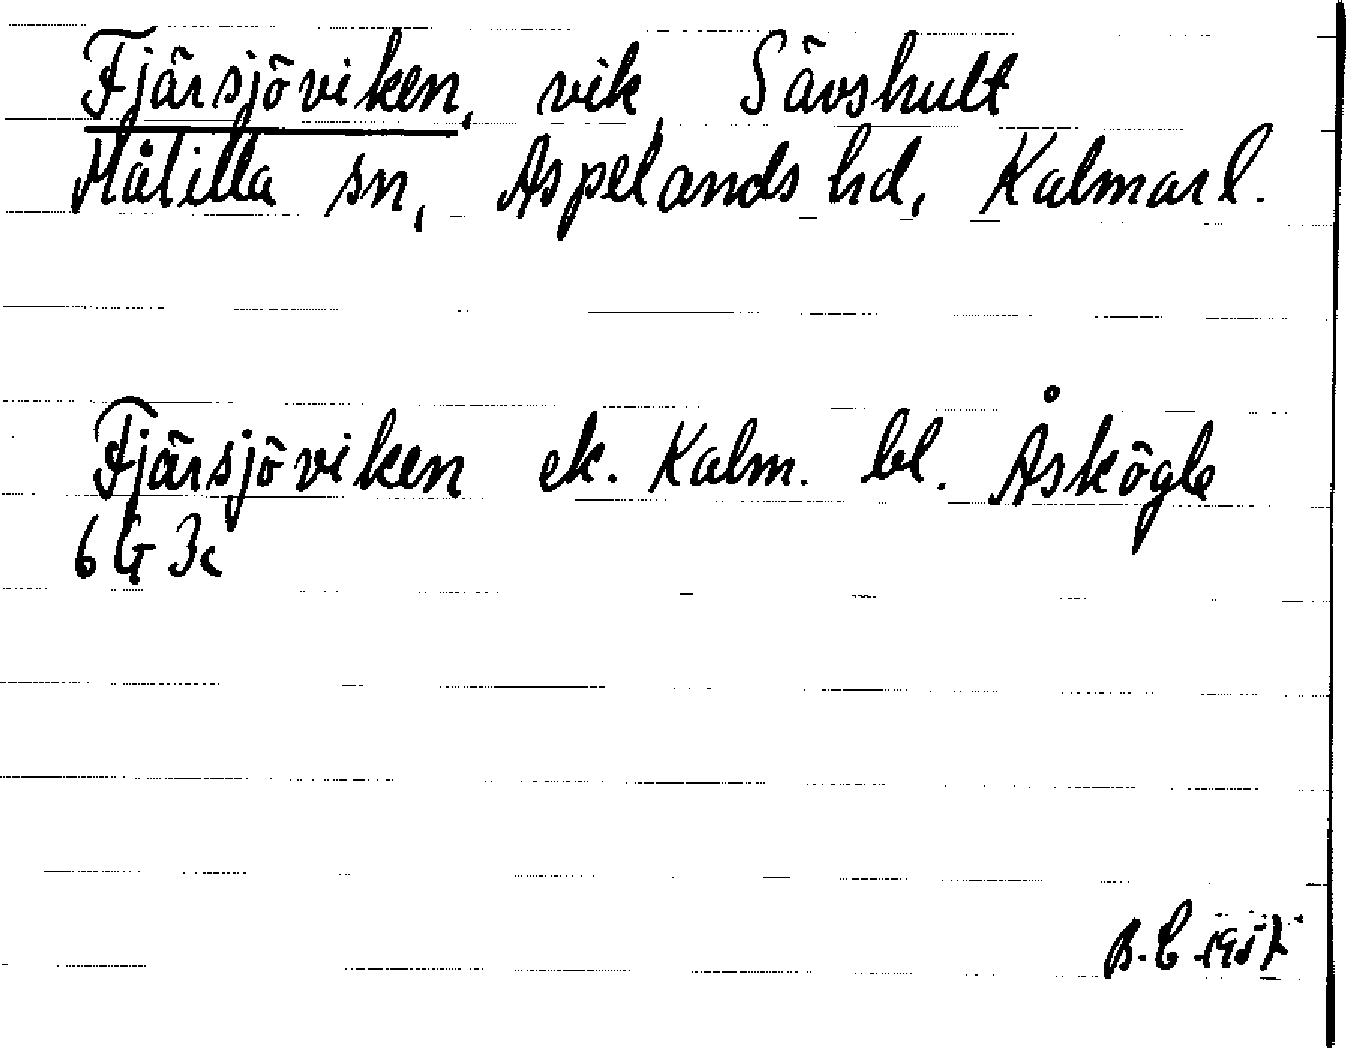 Fjärsjöviken, vik, Sävshult
Målilla sn, Aspelands hd, Kalmar l.
Fjärsjöviken ek. Kalm. bl. Åskögle
6 G 3c
B. E 1957